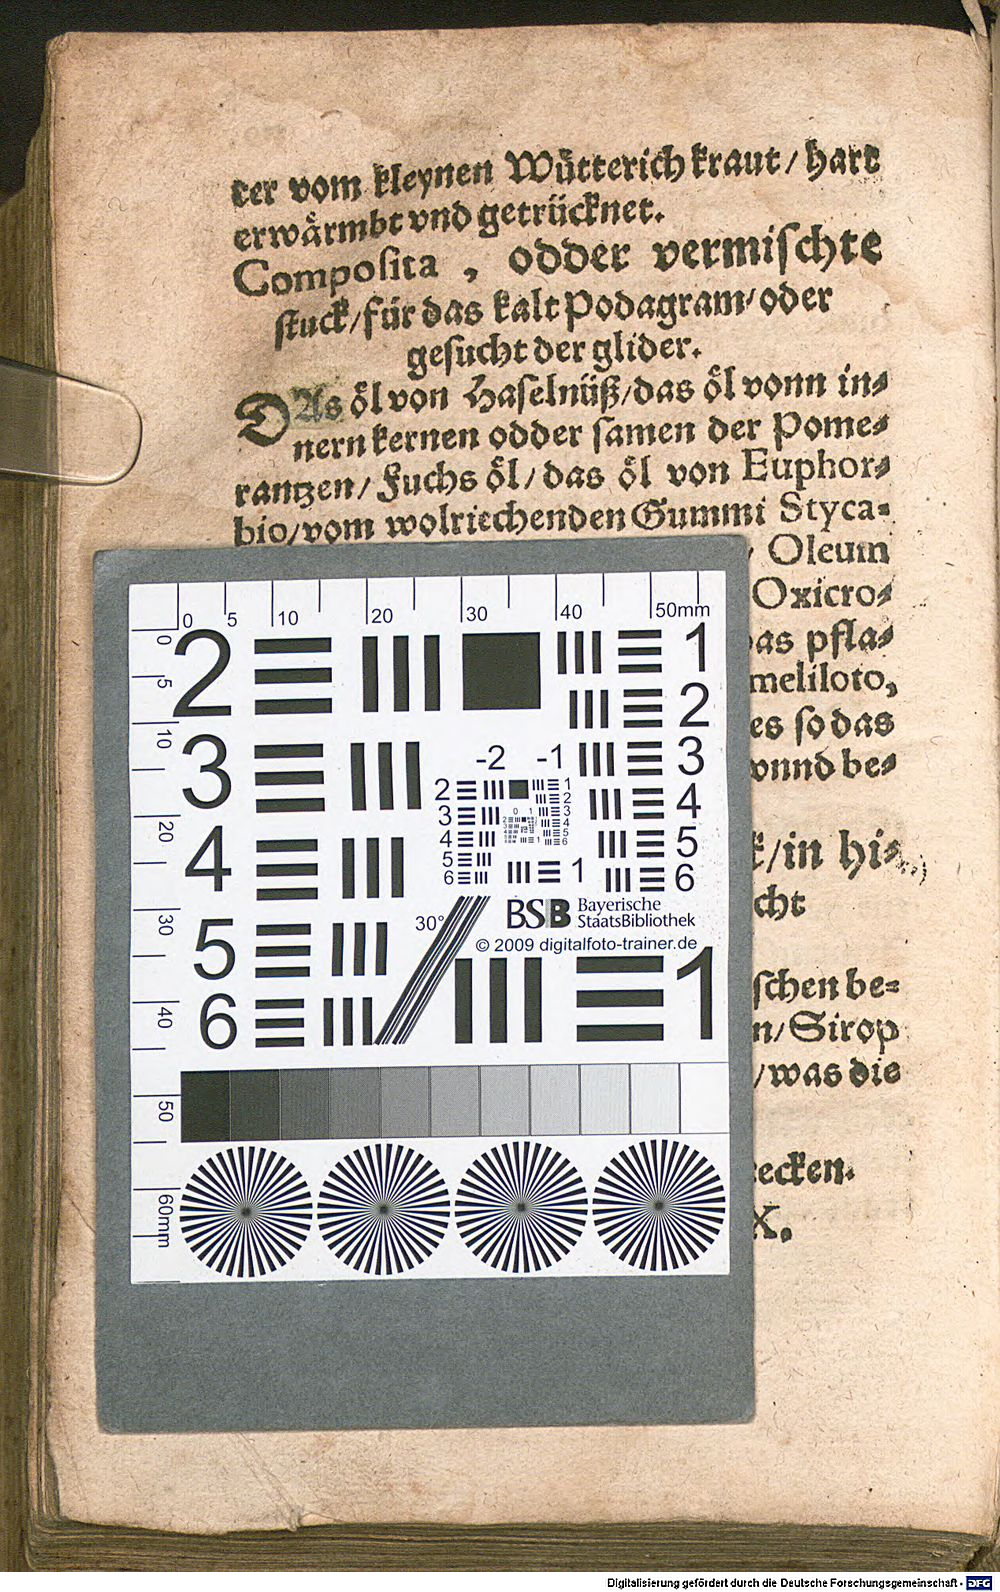 der vom kleynen Wütterich kraut / hart
erwårmbt vnd getrücknet.
Composita , odder vermischte
stuck/für das kalt Podagram/oder
gesucht der glider.
DAs öl von Haselnüß/das öl vonn in⸗
nern kernen odder samen der Pome⸗
rantzen/Fuchs öl/das öl von Euphor⸗
bio/vom wolriechenden Gummi Styca⸗
/ Oleum
Oxicro⸗
das pfla⸗
meliloto,
es so das
vnnd be⸗
/in hi⸗
cht
schen be⸗
n/Sirop
/was die
ecken.
X.
0 5 10 20 30 40 50mm
0 5 10 20 30 40 50 60mm
2 1
2
3 3
-2 -1
4 4
5 5
6 6
2 1
3 2
4 3
5 4
6 5
6
1
30°
BSB Bayerische
StaatsBibliothek
© 2009 digitalfoto-trainer.de
1
Digitalisierung gefördert durch die Deutsche Forschungsgemeinschaft - DFG